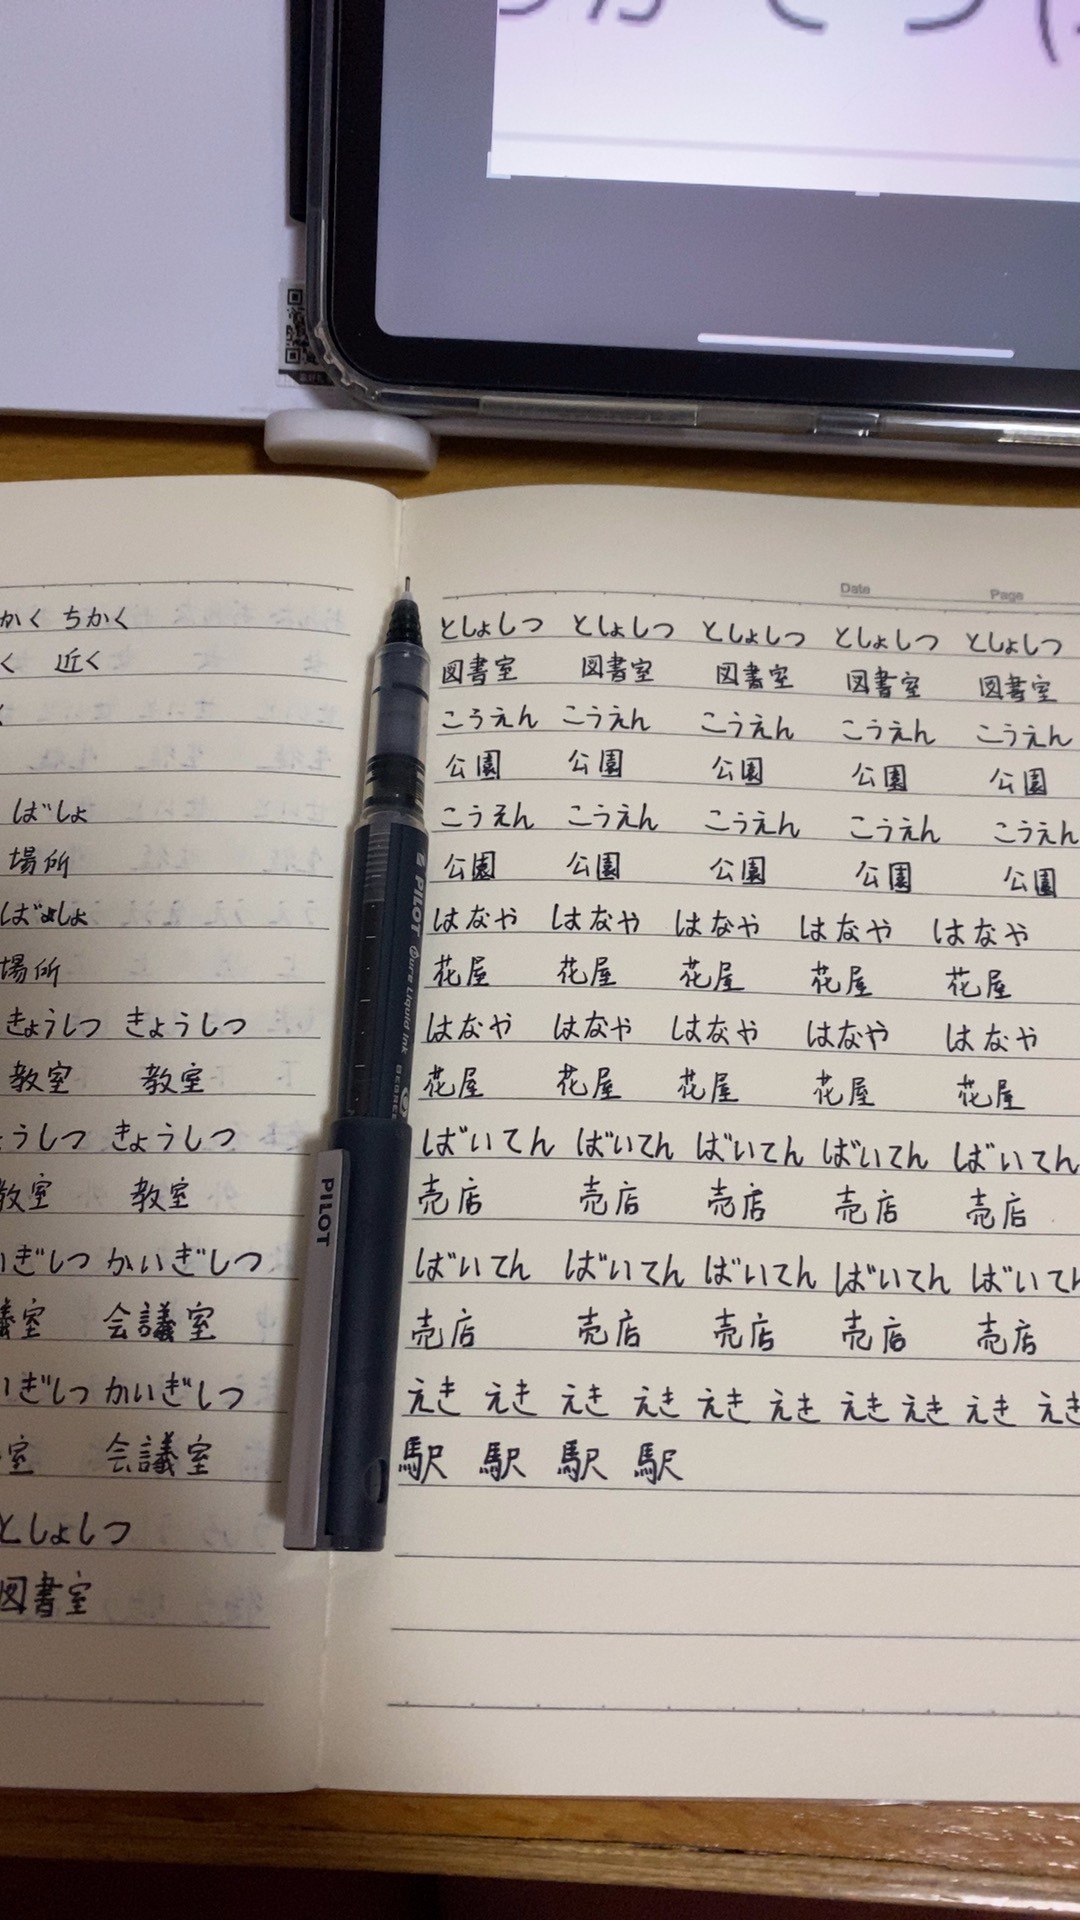 Date Page
かく ちかく
く 近く
く
ばしょ
場所
ばしょ
場所
きょうしつ きょうしつ
教室 教室
うしつ きょうしつ
教室 教室
ぎしつ かいぎしつ
議室 会議室
いぎしつ かいぎしつ
室 会議室
としょしつ
図書室
としょしつ としょしつ としょしつ としょしつ としょしつ
図書室 図書室 図書室 図書室 図書室
こうえん こうえん こうえん こうえん こうえん
公園 公園 公園 公園 公園
こうえん こうえん こうえん こうえん こうえん
公園 公園 公園 公園 公園
はなや はなや はなや はなや はなや
花屋 花屋 花屋 花屋 花屋
はなや はなや はなや はなや はなや
花屋 花屋 花屋 花屋 花屋
ばいてん ばいてん ばいてん ばいてん ばいてん
売店 売店 売店 売店 売店
ばいてん ばいてん ばいてん ばいてん ばいてん
売店 売店 売店 売店 売店
えき えき えき えき えき えき えき えき えき えき
駅 駅 駅 駅
PILOT Pure Liquid Ink
PILOT